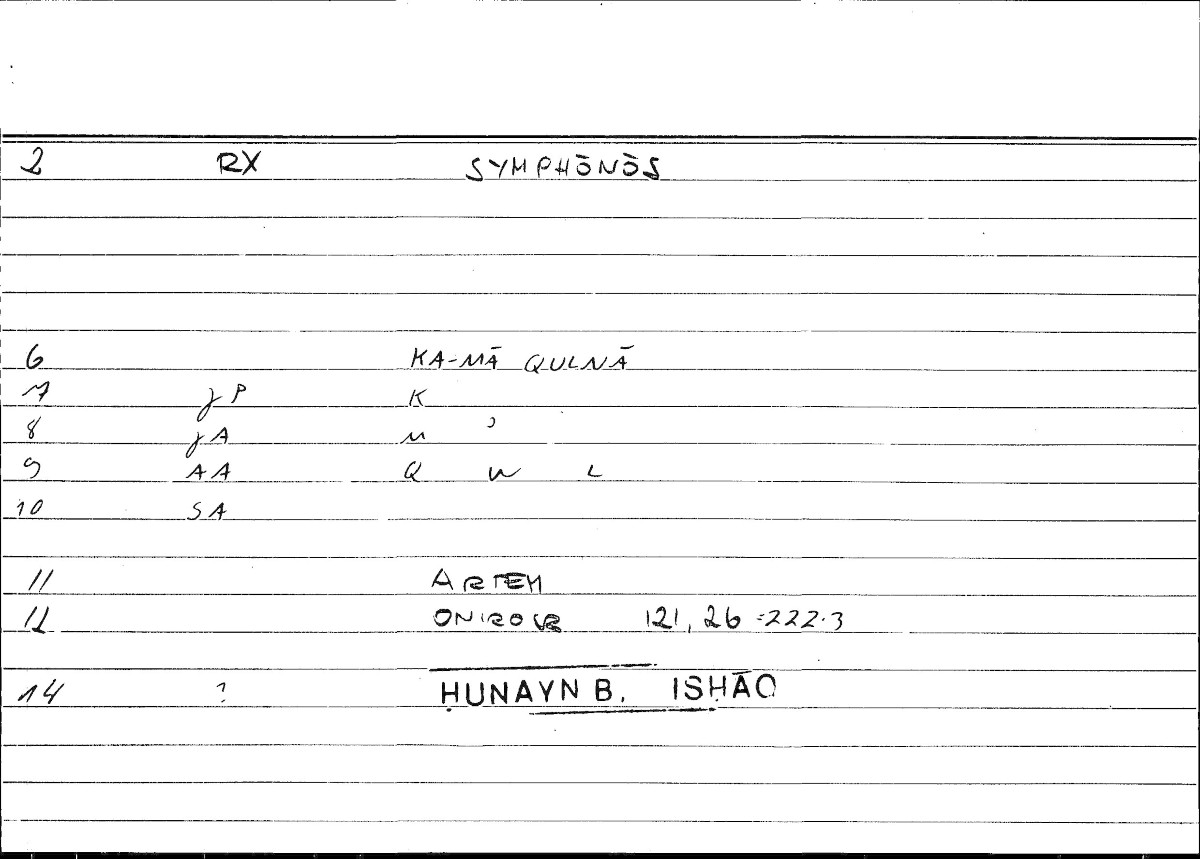 2 RX SYMPHŌNŌS
6 KA-MĀ QULNĀ
7 JP K
8 JA M ʾ
9 AA Q W L
10 SA
11 ARTEM
12 ONIROCR 121,26 = 222.3
14 ? ḤUNAYN B. ISḤĀQ